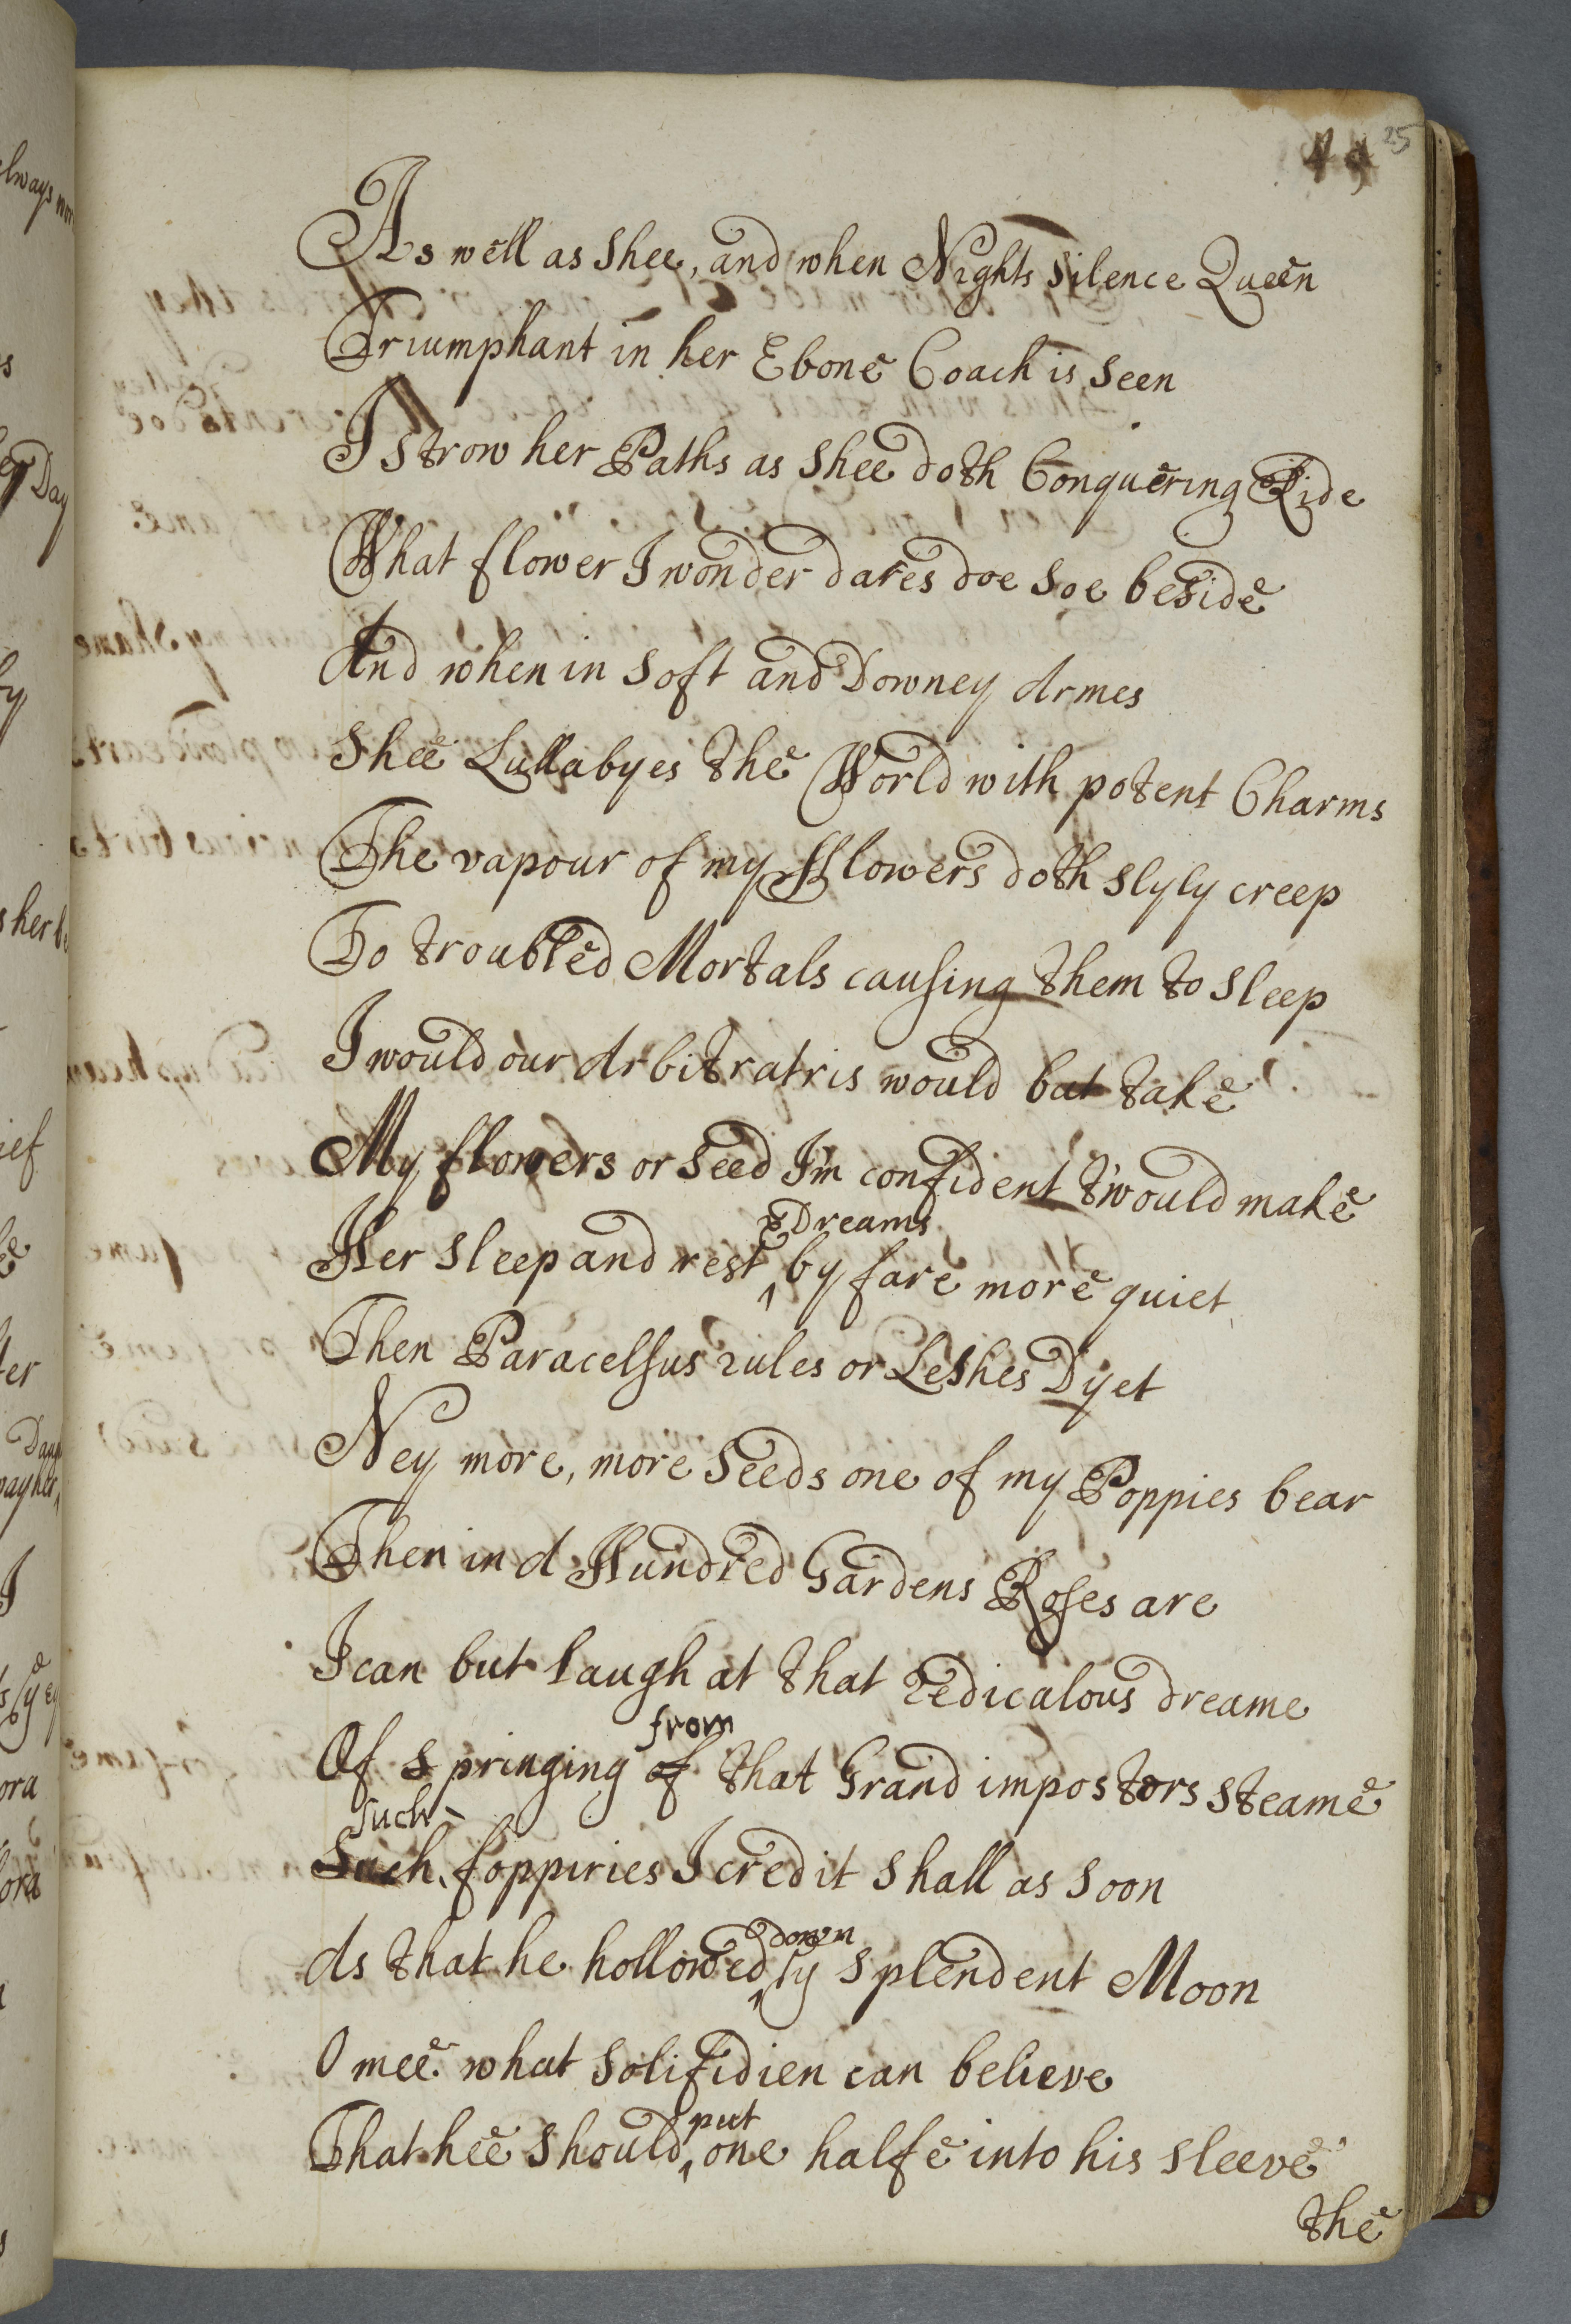 49 25
As well as Shee, and when Nights Silence Queen
Triumphant in her Ebone Coach is Seen
I Strow her Paths as Shee doth Conquering Ride
What flower I wonder dares doe Soe beside
And when in Soft and Downey Armes
Shee Lullabyes the World with potent Charms
The vapour of my fflowers doth Slyly creep
To troubled Mortals causing them to Sleep
I would our Arbitratris would but take
My flowers or Seed I'm confident t'would make
& Dreams
Her Sleep and rest ^ by fare more quiet
Then Paracelsus rules or Leshes Dyet
Ney more, more Seeds one of my Poppies bear
Then in A Hundred Gardens Roses are
I can but laugh at that redicalous dreame
from
Of Springing of that Grand impostors Steame
Such
Such foppiries I credit Shall as Soon
down
As that he hollowed ^ ye Splendent Moon
O mee what Solifidien can believe
put
That hee Should ^ one halfe into his Sleeve
the